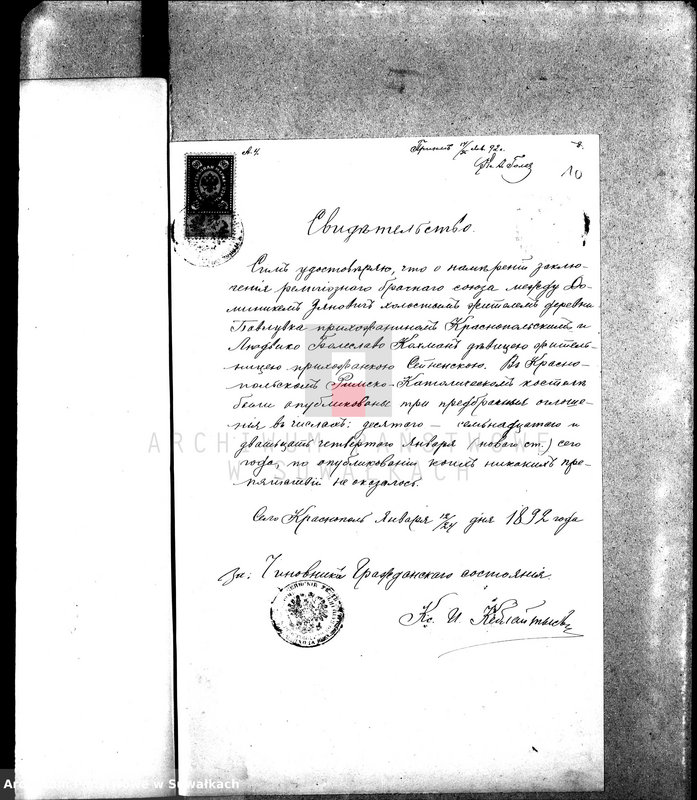 10
Свидѣтельство.
Симъ удостовѣряю, что о намѣреніи заклю-
ченія религіознаго брачнаго союза между До-
миникомъ Уляновичъ холостымъ жителемъ деревни
Павлувка прихожаниномъ Краснопольскимъ и
Людвико Болеславо Колмакъ дѣвицею житель-
ницею прихожанкою Сейненскою. Въ Красно-
польскомъ Римско-Католическомъ костелѣ
были опубликованы три предбрачныя оглаше-
нія въ числахъ: десятого – семьнадцатого и
двадцать четвертого Января (новаго ст.) сего
года, по опубликованіи коихъ никакихъ пре-
пятствій не оказалось.
Село Краснополь Января 12/24 дня 1892 года
За: Чиновника Гражданскаго состоянія.
Кс. И.
ARCHIWUM PAŃSTWOWE
W SUWAŁKACH
w Suwałkach